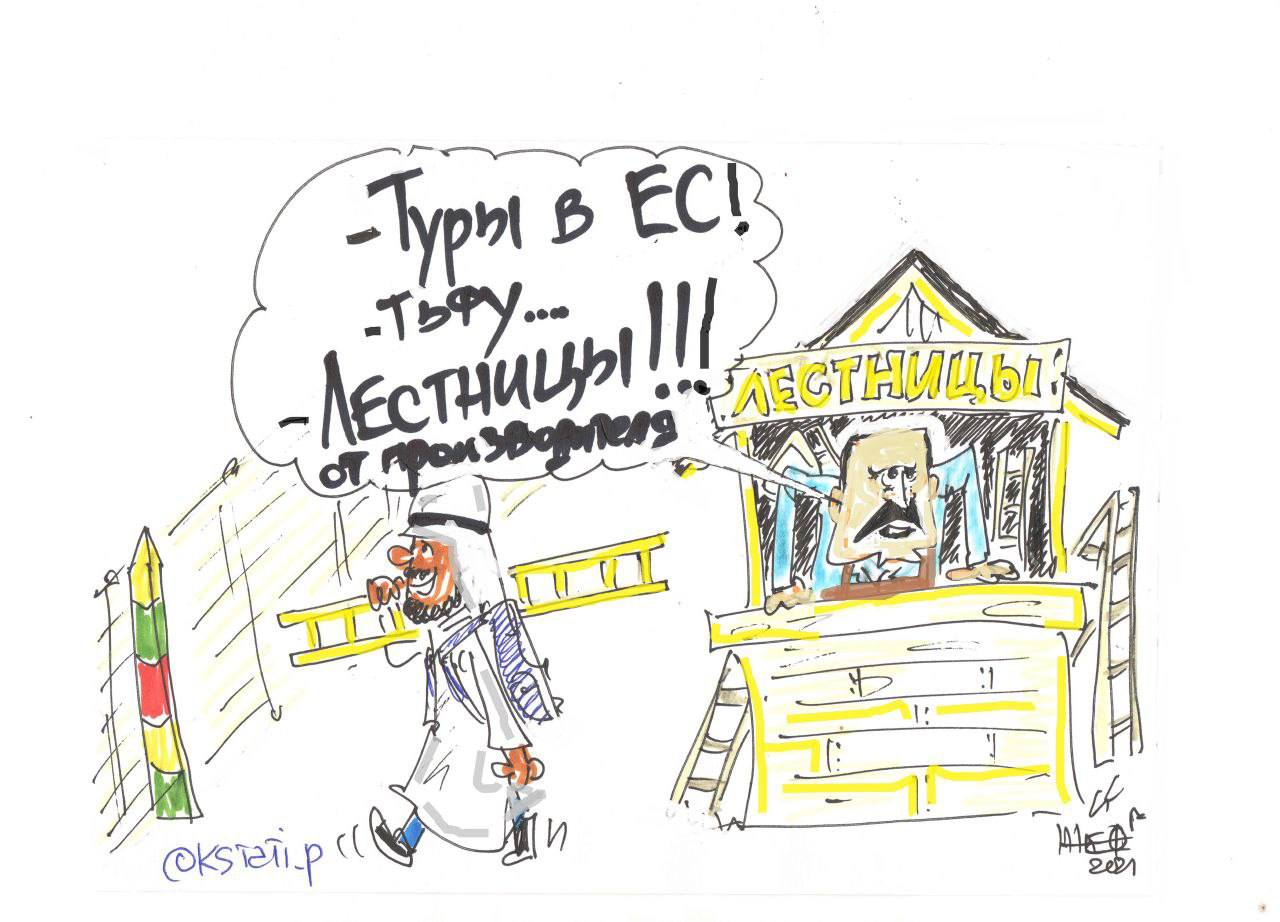 -Туры в ЕС!
-Тьфу....
-Лестницы!!!
от производителя
ЛЕСТНИЦЫ
@KSTATI_P
2021